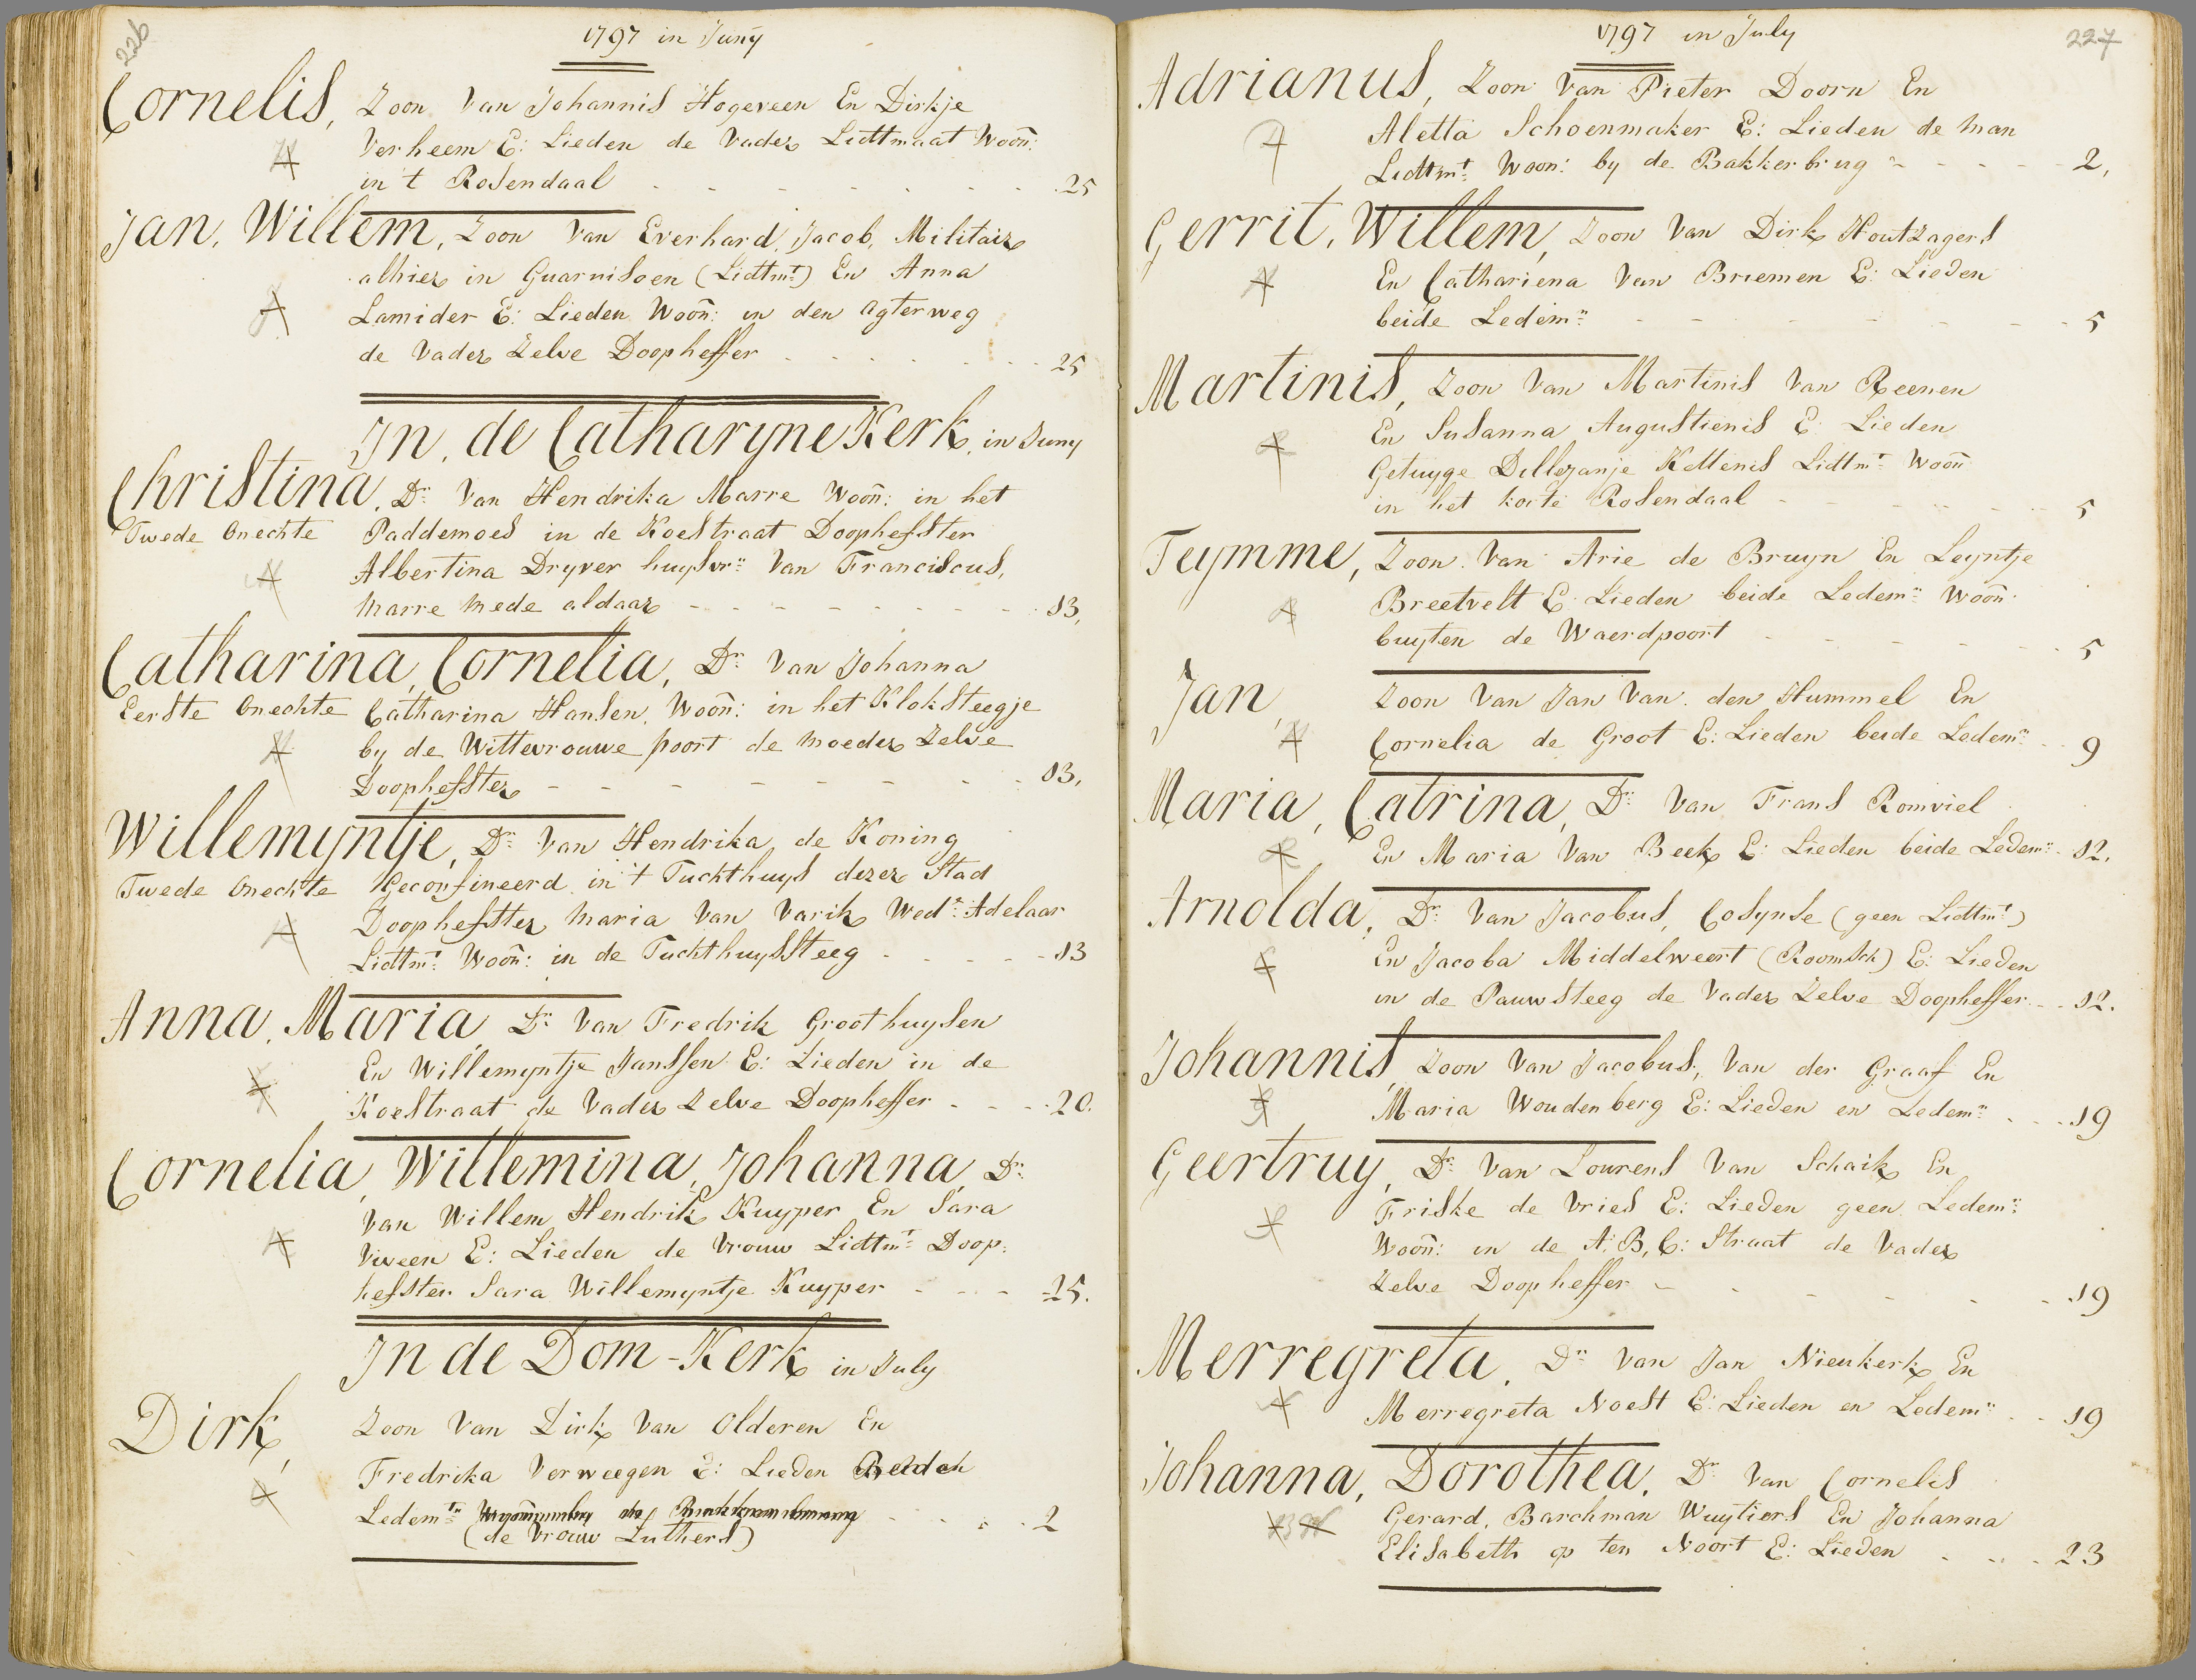 226
1797 in Juny
Cornelis, Zoon Van Johannis Hogeveen En Dirkje
Verheem E: Lieden de Vader Lidtmaat Woon:
in 't Rosendaal - - - - - - - 25
Jan, Willem, Zoon Van Everhard, Jacob, Militair
alhier in Guarnisoen (Lidtmt) En Anna
Lamider E: Lieden Woon: in den Agterweg
de Vader Zelve Doopheffer - - - - - - 25
In, de Catharyne Kerk, in Juny
Christina, Dr: Van Hendrika Marre Woon: in het
Twede Onechte Paddemoes in de Koestraat Doophefster
Albertina Dryver huysvr: Van Franciscus,
Marre Mede aldaar - - - - - - - - 13,
Catharina, Cornelia, Dr: Van Johanna
Eerste Onechte Catharina Hansen, Woon: in het Kloksteegje
by de Wittevrouwe poort de Moeder Zelve
Doophefster - - - - - - - - 13,
Willemyntje, Dr: Van Hendrika, de Koning
Twede Onechte Geconfineerd in 't Tuchthuys dezer Stad
Doophefster Maria Van Varik Wedr: Adelaar
Lidtmt: Woon: in de Tuchthuyssteeg - - - - - 13
Anna, Maria, Dr: Van Fredrik Groothuysen
En Willemyntje Janssen E: Lieden in de
Koestraat de Vader Zelve Doopheffer - - - - 20.
Cornelia, Willemina, Johanna, Dr:
Van Willem Hendrik Kuyper En Sara
Viveen E: Lieden de Vrouw Lidtmt: Doop:
hefster Sara Willemyntje Kuyper - - - - 25.
In de Dom-Kerk in July
Dirk, Zoon Van Dirk Van Olderen En
Fredrika Verweegen E: Lieden
Ledemt: - - - - 2
(de Vrouw Luthers)
227
1797 in July
Adrianus, Zoon Van Pieter Doorn En
Aletta Schoenmaker E: Lieden de Man
Lidtmt: Woon: by de Bakkerbrug - - - - - 2,
Gerrit, Willem, Zoon Van Dirk Houtzagers
En Cathariena Van Briemen E: Lieden
beide Ledem: - - - - - - - 5
Martinis, Zoon Van Martinis Van Reenen
En Susanna Augustienis E: Lieden
Getuyge Dellezanje Kettenis Lidtmt: Woon
in het korte Rosendaal - - - - - - 5
Teymme, Zoon Van Arie de Bruyn En Leyntje
Breetvelt E: Lieden beide Ledem: Woon:
buyten de Waerdpoort - - - - - - 5
Jan, Zoon Van Jan Van den Hummel En
Cornelia de Groot E: Lieden beide Ledem: - - 9
Maria, Catrina, Dr: Van Frans Romviel
En Maria Van Beek E: Lieden beide Ledem: - 12.
Arnolda, Dr: Van Jacobus, Cosynse (geen Lidtmt)
En Jacoba Middelweert (Roomsch) E: Lieden
in de Pauwsteeg de Vader Zelve Doopheffer - - 12.
Johannis, Zoon Van Jacobus, Van der Graaf En
Maria Woudenberg E: Lieden en Ledem: - - - 19
Geertruy, Dr: Van Lourens Van Schaik En
Friske de Vries E: Lieden geen Ledem:
Woon: in de A, B, C: Straat de Vader
Zelve Doopheffer - - - - - - - 19
Merregreta, Dr: Van Jan Nieukerk En
Merregreta Noest E: Lieden en Ledem: - - 19
Johanna, Dorothea, Dr: Van Cornelis
Gerard, Barchman Wuytiers En Johanna
Elisabeth op ten Noort E: Lieden - - - - 23